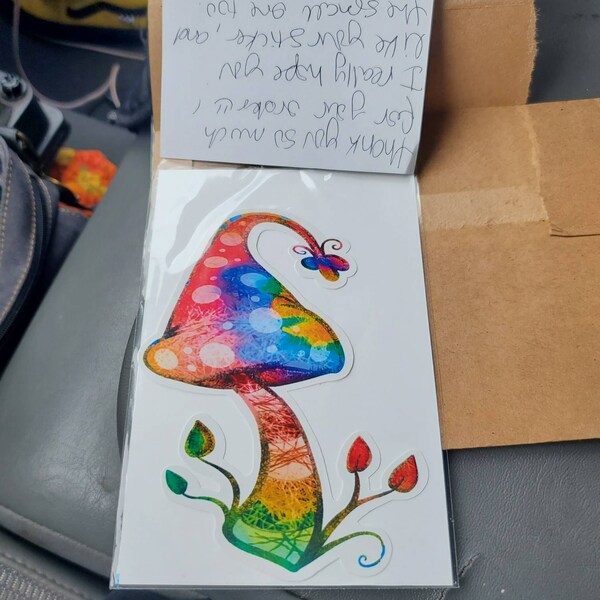 Thank you so much
for your order !!! 
I really hope you
like your sticker, and
the small one too.